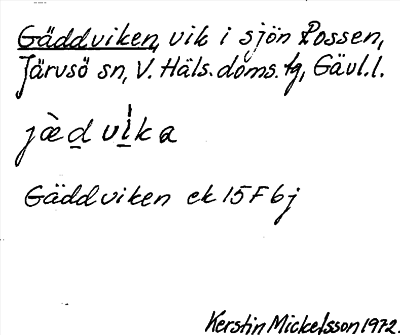 Gäddviken, vik i sjön Rossen,
Järvsö sn, V. Häls. doms. tg, Gävl. l.
jæ̀d vi̍ka
Gäddviken ek 15F6j
Kerstin Mickelsson 1972.